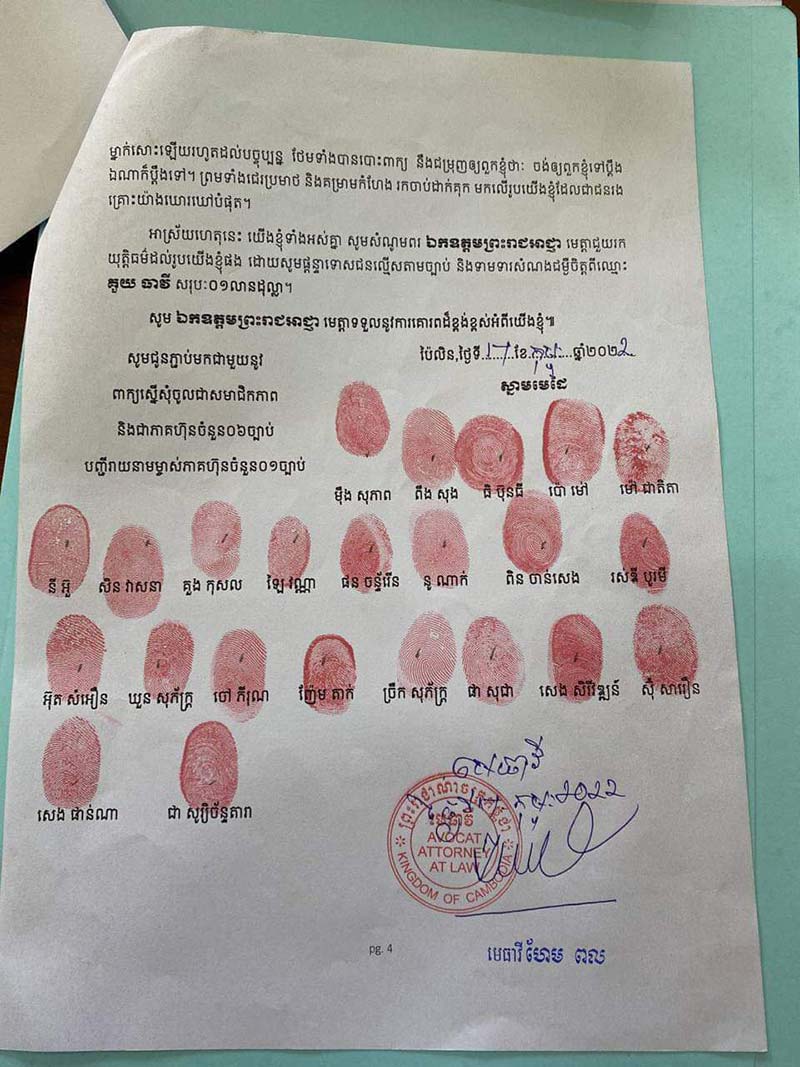 ម្នាក់សោះឡើយរហូតដល់បច្ចុប្បន្ន ថែមទាំងបានបោះពាក្យ នឹងជម្រុញឲ្យពួកខ្ញុំថាៈ ចង់ឲ្យពួកខ្ញុំទៅប្តឹង
ឯណាក៏ប្តឹងទៅ។ ព្រមទាំងជេរប្រមាថ និងគម្រាមកំហែង រកចាប់ដាក់គុក មកលើរូបយើងខ្ញុំដែលជាជនរង
គ្រោះយ៉ាងឃោរឃៅបំផុត។
អាស្រ័យហេតុនេះ យើងខ្ញុំទាំងអស់គ្នា សូមសំណូមពរ ឯកឧត្តមព្រះរាជអាជ្ញា មេត្តាជួយរក
យុត្តិធម៌ដល់រូបយើងខ្ញុំផង ដោយសូមផ្តន្ទាទោសជនល្មើសតាមច្បាប់ និងទាមទារសំណងជម្ងឺចិត្តពីឈ្មោះ
គួយ ធាវី សរុបៈ០១លានដុល្លា។
សូម ឯកឧត្តមព្រះរាជអាជ្ញា មេត្តាទទួលនូវការគោរពដ៏ខ្ពង់ខ្ពស់អំពីយើងខ្ញុំ៕
សូមជូនភ្ជាប់មកជាមួយនូវ
ប៉ៃលិន,ថ្ងៃទី..១៧..ខែ.កុម្ភៈ...ឆ្នាំ២០២២
ពាក្យស្នើសុំចូលជាសមាជិកភាព
ស្នាមមេដៃ
និងជាភាគហ៊ុនចំនួន០៦ច្បាប់
បញ្ជីរាយនាមម្ចាស់ភាគហ៊ុនចំនួន០១ច្បាប់
ម៉ឹង សុភាព ពឹង សុង ធិ ប៊ុនធី ប៉ោ ម៉ៅ ម៉ៅ ជាតិតា
នី អ៊ួ សិន វាសនា គួង កុសល ឡៃ វណ្ណា ផន ចន្ទ័រើន នូ ណាក់ ពិន ចាន់សេង រស់ឌី បូរមី
អ៊ុត សំអឿន ឃួន សុភ័ក្ត្រ ចៅ ភីរុណ ញ៉ែម តាក់ ច្រឹក សុភ័ក្ត្រ ផា សុជា សេង សិរីវឌ្ឍន៍ ស៊ឹ សារឿន
សេង ផាន់ណា ជា សូរ្យិច័ន្ទតារា
មេធាវី
កុម្ភៈ ២០២២
ព្រះរាជាណាចក្រកម្ពុជា
មេធាវី
AVOCAT
ATTORNEY
AT LAW
KINGDOM OF CAMBODIA
pg. 4
មេធាវី ហែម ពល